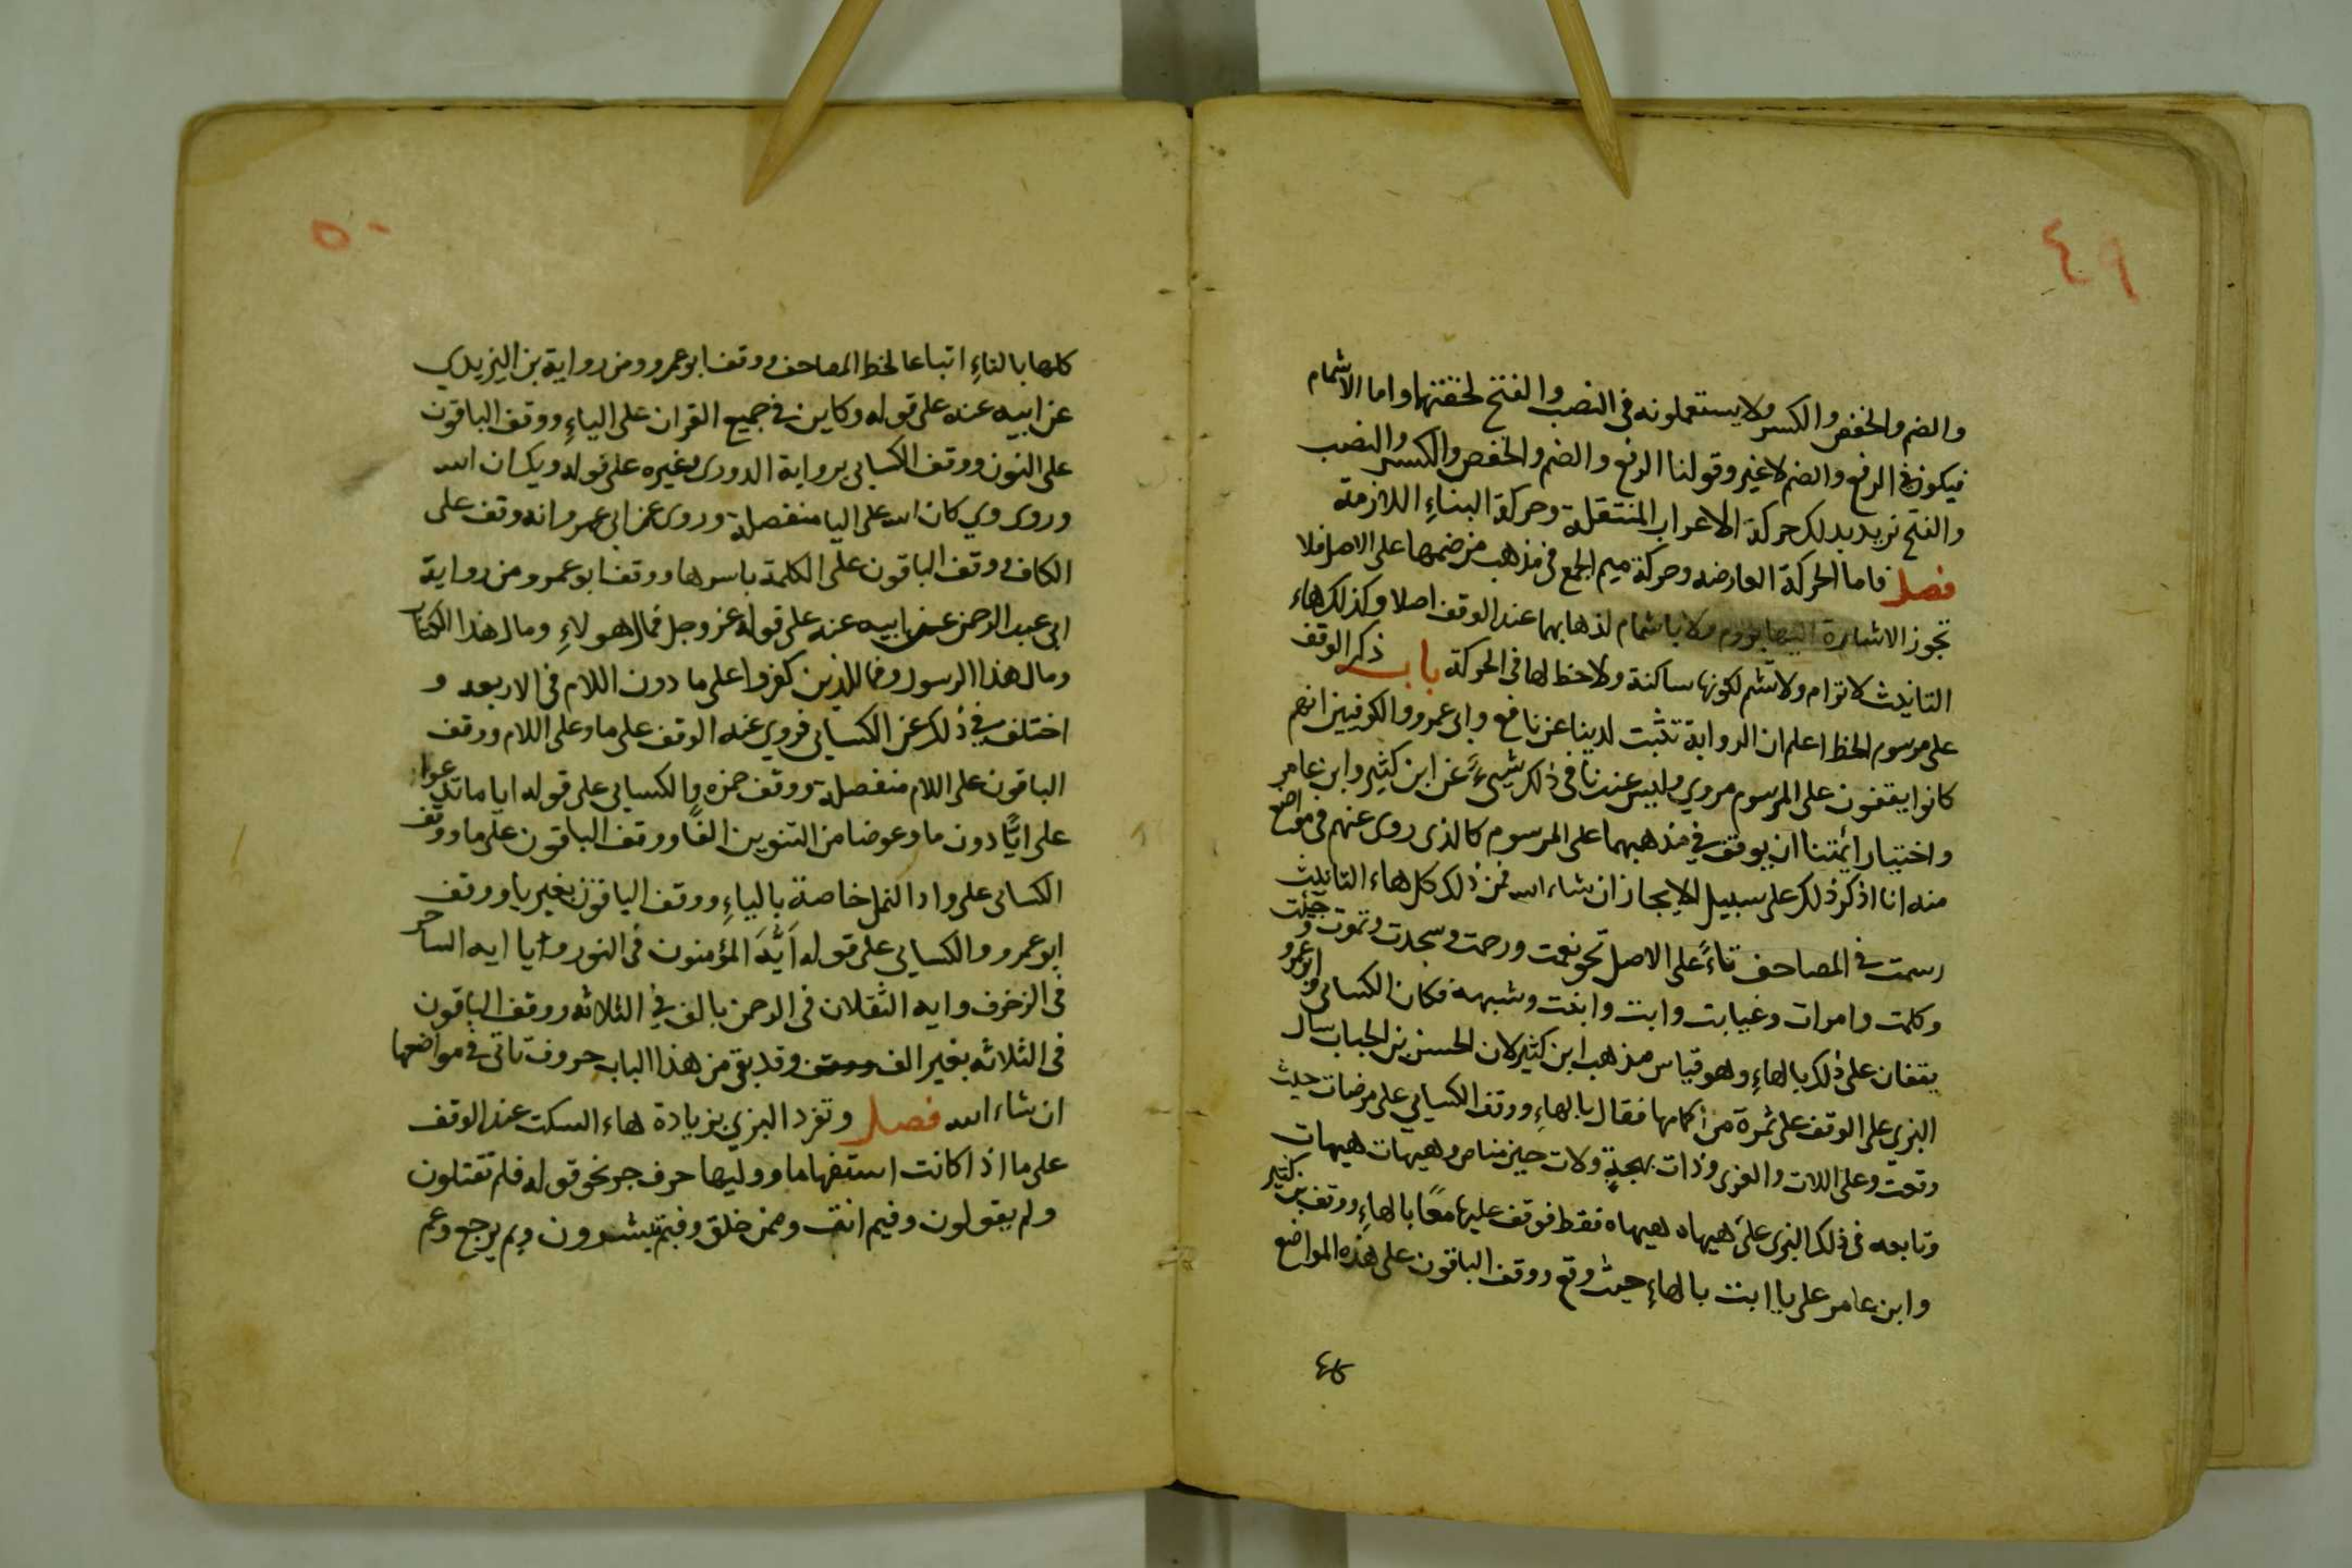 ٤٩
والضم والخفض والكسر ولا يستعملونه فى النصب والفتح لخفتهما واما الاشمام
فيكون في الرفع والضم لا غير وقولنا الرفع والضم والخفض والكسر والنصب
والفتح نريد بذلك حركة الاعراب المنتقلة وحركة البناءِ اللازمة
فصل فاما الحركة العارضه وحركة ميم الجمع فى مذهب من ضمها على الاصل فلا
تجوز الاشارة اليهما بروم ولا باشمام لذهابهما عند الوقف اصلا وكذلك هاء
التانيث لا ترام ولا تشم لكونها ساكنة ولا حظ لها فى الحركة باب ذكر الوقف
على مرسوم الخط اعلم ان الرواية تثبت لدينا عن نافع وابى عمرو والكوفيين انهم
كانوا يقفون على المرسوم مروي وليس عندنا فى ذلك شيءً عن ابن كثير وابن عامر
واختيار ائمتنا ان يوقف في مذهبهما على المرسوم كالذى روى عنهم فى مواضع
منه انا اذكر ذلك على سبيل الايجاز ان شاء الله فمن ذلك كل هاء التانيث
رسمت فى المصاحف تاءً على الاصل نحو نعمت ورحمت وسجدت وتموت وجيئت
وكلمت وامرات وغيابت وابنت وابغت وشبهه فكان الكسائى وابو عمرو
يقفان على ذلك بالهاءِ وهو قياس مذهب ابن كثير لان الحسن بن الحباب سال
البزي على الوقف على ثمرة من اكمامها فقال بالهاءِ ووقف الكسايي على مرضات حيث
وقعت وعلى اللات والعزى وذات بهجةٍ ولات حين مناص وهيهات هيهات
وتابعه فى ذلك البزى على هيهاه هيهاه فقط فوقف عليهما معًا بالهاءِ ووقف بن كثير
وابن عامر على يا ابت بالهاءِ حيث وقع ووقف الباقون على هذه المواضع
٥٠
كلها بالتاءِ اتباعا لخط المصاحف ووقف ابو عمرو ومن رواية بن اليزيدي
عن ابيه عنه على قوله وكاين فى جميع القران على الياءِ ووقف الباقون
على النون ووقف الكسايى برواية الدورى وغيره على قوله ويكان الله
وروى وي كان الله على اليا منفصلة وروى عن ابى عمرو انه وقف على
الكاف ووقف الباقون على الكلمة باسرها ووقف ابو عمرو ومن رواية
ابى عبد الرحمن عن ابيه عنه على قوله عز وجل فمال هولاءِ ومال هذا الكتاب
ومال هذا الرسول وفمال الذين كفروا على ما دون اللام فى الاربعه و
اختلف في ذلك عن الكسايى فروي عنه الوقف على ما وعلى اللام ووقف
الباقون على اللام منفصلة ووقف حمزه والكسايى على قوله ايا ما تدعوا
على ايًّا دون ما وعوضا من التنوين الفًا ووقف الباقون على ما ووقف
الكسائى على واد النمل خاصة بالياءِ ووقف الباقون بغير يا ووقف
ابو عمرو والكسايى على قوله اَيُّهَ المؤمنون فى النور ويا ايه الساحر
فى الزخرف وايه الثقلان فى الرحمن بالف في الثلاثه ووقف الباقون
فى الثلاثه بغير الف وقد بقى من هذا الباب حروف تاتى فى مواضعها
ان شاء الله فصل وتفرد البزي بزيادة هاء السكت عند الوقف
على ما اذا كانت استفهاما ووليها حرف جر نحو قوله فلم تقتلون
ولم يقولون وفيم انت وممن خلق وفبم تبشرون وبم يرجع وعم